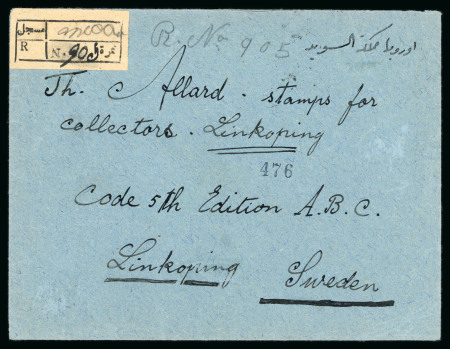 مسجل
R
N. 905
R. No 905
اوروبا مملكة السويد
Th. Allard. stamps for
collectors. Linkoping
476
Code 5th Edition A.B.C.
Linkoping Sweden